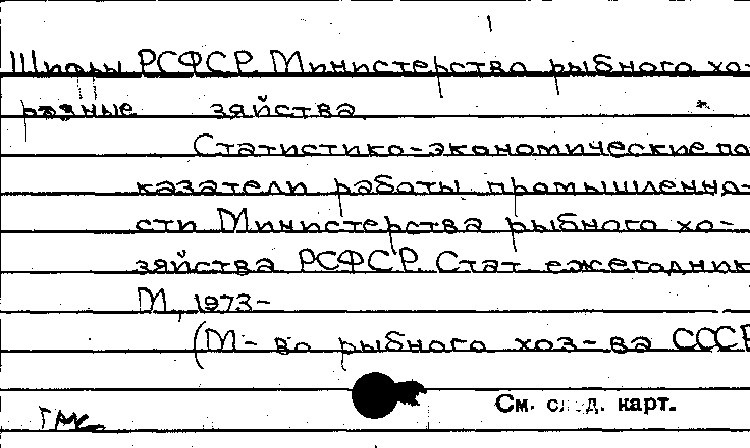 1
Шифры РСФСР. Министерство рыбного хо-
разные зяйства
Статистико-экономические по-
казатели работы промышленно-
сти Министерства рыбного хо-
зяйства РСФСР. Стат. ежегодник
М., 1973-
(М-во рыбного хоз-ва СССР
См. след. карт.